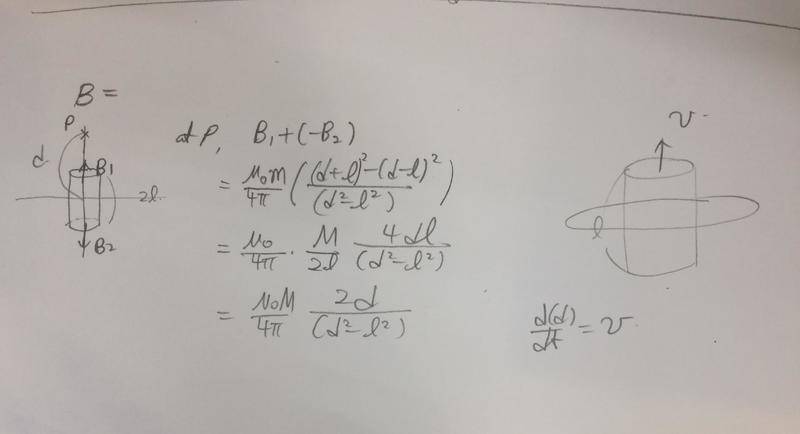 B =
P
d
B₁
2l.
B₂
at P, B₁+(-B₂)
= μ₀m/4π ( ((d+l)²-(d-l)²)/(d²-l²) )
= μ₀/4π · M/2l 4dl/(d²-l²)
= μ₀M/4π 2d/(d²-l²)
v.
l
d(d)/dt = v.